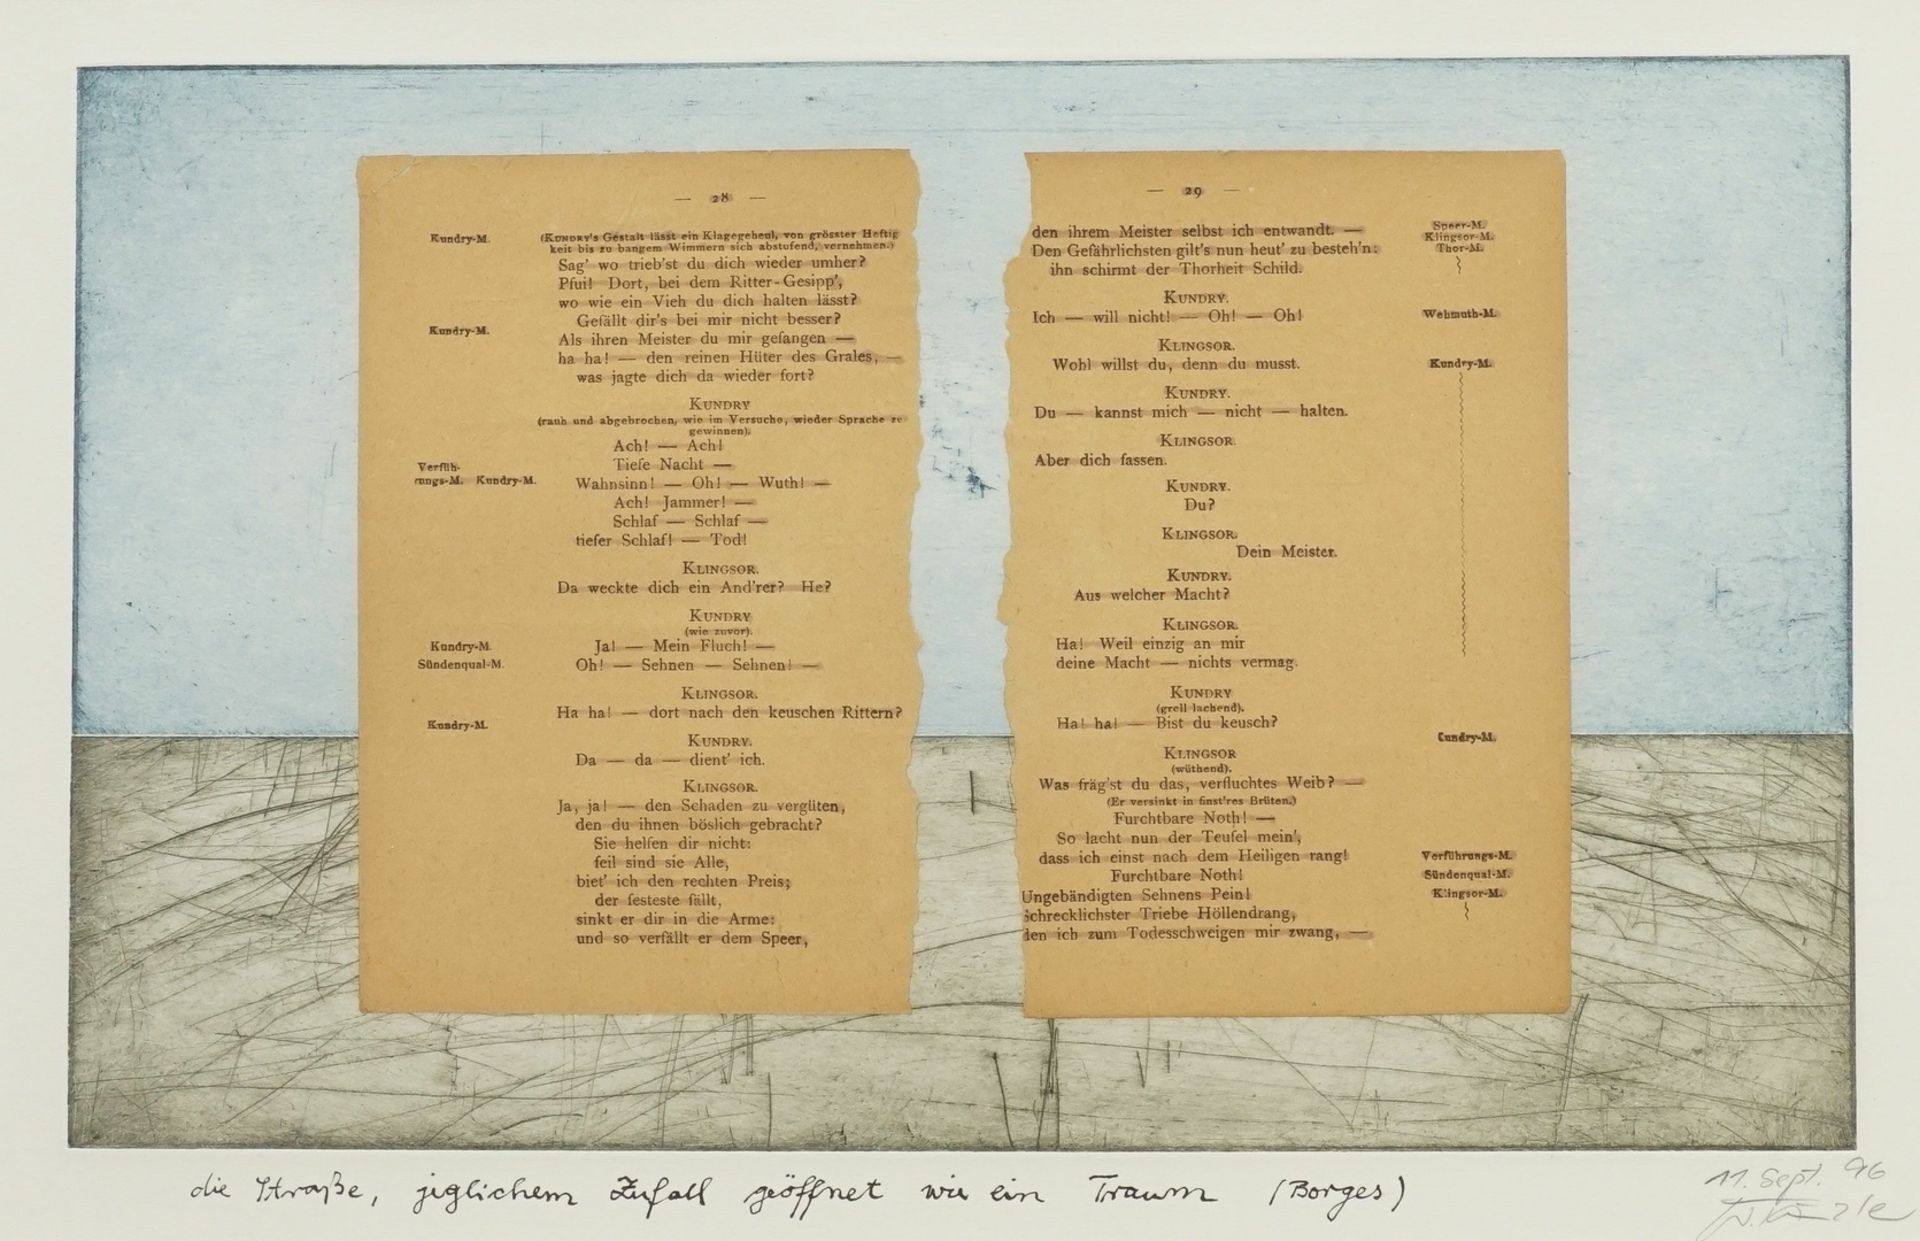 — 28 —
Kundry-M. (KUNDRY'S Gestalt lässt ein Klagegeheul, von grösster Heftig
keit bis zu bangem Wimmern sich abstufend, vernehmen.)
Sag' wo trieb'st du dich wieder umher?
Pfui! Dort, bei dem Ritter-Gesipp',
wo wie ein Vieh du dich halten lässt?
Gefällt dir's bei mir nicht besser?
Kundry-M. Als ihren Meister du mir gefangen —
ha ha! — den reinen Hüter des Grales, —
was jagte dich da wieder fort?
KUNDRY
(rauh und abgebrochen, wie im Versuche, wieder Sprache zu
gewinnen).
Ach! — Ach!
Verfüh- Tiefe Nacht —
rungs-M. Kundry-M. Wahnsinn! — Oh! — Wuth! —
Ach! Jammer! —
Schlaf — Schlaf —
tiefer Schlaf! — Tod!
KLINGSOR.
Da weckte dich ein And'rer? He?
KUNDRY
(wie zuvor).
Kundry-M. Ja! — Mein Fluch! —
Sündenqual-M. Oh! — Sehnen — Sehnen! —
KLINGSOR.
Ha ha! — dort nach den keuschen Rittern?
Kundry-M.
KUNDRY.
Da — da — dient' ich.
KLINGSOR.
Ja, ja! — den Schaden zu vergüten,
den du ihnen böslich gebracht?
Sie helfen dir nicht:
feil sind sie Alle,
biet' ich den rechten Preis;
der festeste fällt,
sinkt er dir in die Arme:
und so verfällt er dem Speer,
— 29 —
den ihrem Meister selbst ich entwandt. — Speer-M.
Klingsor-M.
Den Gefährlichsten gilt's nun heut' zu besteh'n: Thor-M.
ihn schirmt der Thorheit Schild.
KUNDRY.
Ich — will nicht! — Oh! — Oh! Wehmuth-M.
KLINGSOR.
Wohl willst du, denn du musst. Kundry-M.
KUNDRY.
Du — kannst mich — nicht — halten.
KLINGSOR.
Aber dich fassen.
KUNDRY.
Du?
KLINGSOR.
Dein Meister.
KUNDRY.
Aus welcher Macht?
KLINGSOR.
Ha! Weil einzig an mir
deine Macht — nichts vermag.
KUNDRY
(grell lachend).
Ha! ha! — Bist du keusch?
Kundry-M.
KLINGSOR
(wüthend).
Was fräg'st du das, verfluchtes Weib? —
(Er versinkt in finst'res Brüten.)
Furchtbare Noth! —
So lacht nun der Teufel mein',
dass ich einst nach dem Heiligen rang! Verführungs-M.
Furchtbare Noth! Sündenqual-M.
Ungebändigten Sehnens Pein! Klingsor-M.
Schrecklichster Triebe Höllendrang,
den ich zum Todesschweigen mir zwang, —
die Straße, jeglichem Zufall geöffnet wie ein Traum (Borges)
11. Sept. 96